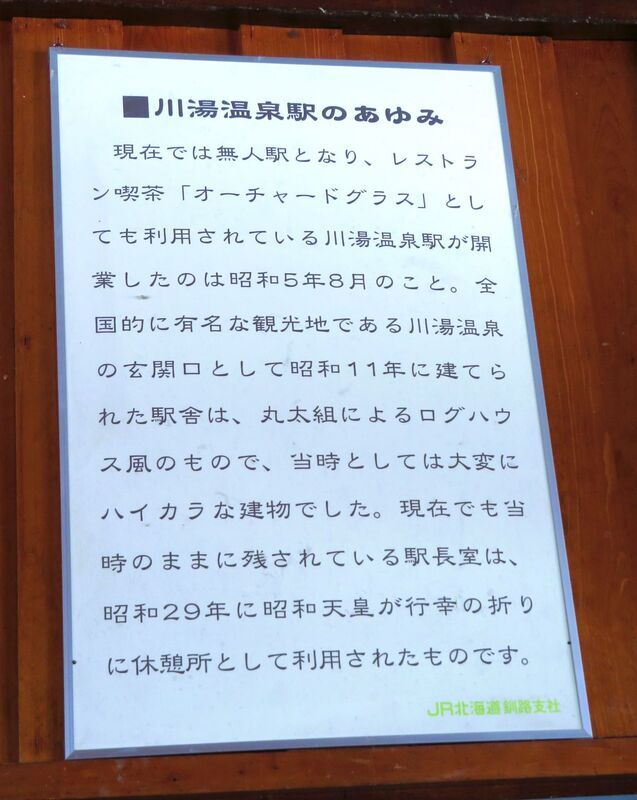 ■川湯温泉駅のあゆみ
現在では無人駅となり、レストラ
ン喫茶「オーチャードグラス」とし
ても利用されている川湯温泉駅が開
業したのは昭和5年8月のこと。全
国的に有名な観光地である川湯温泉
の玄関口として昭和11年に建てら
れた駅舎は、丸太組によるログハウ
ス風のもので、当時としては大変に
ハイカラな建物でした。現在でも当
時のままに残されている駅長室は、
昭和29年に昭和天皇が行幸の折り
に休憩所として利用されたものです。
JR北海道釧路支社